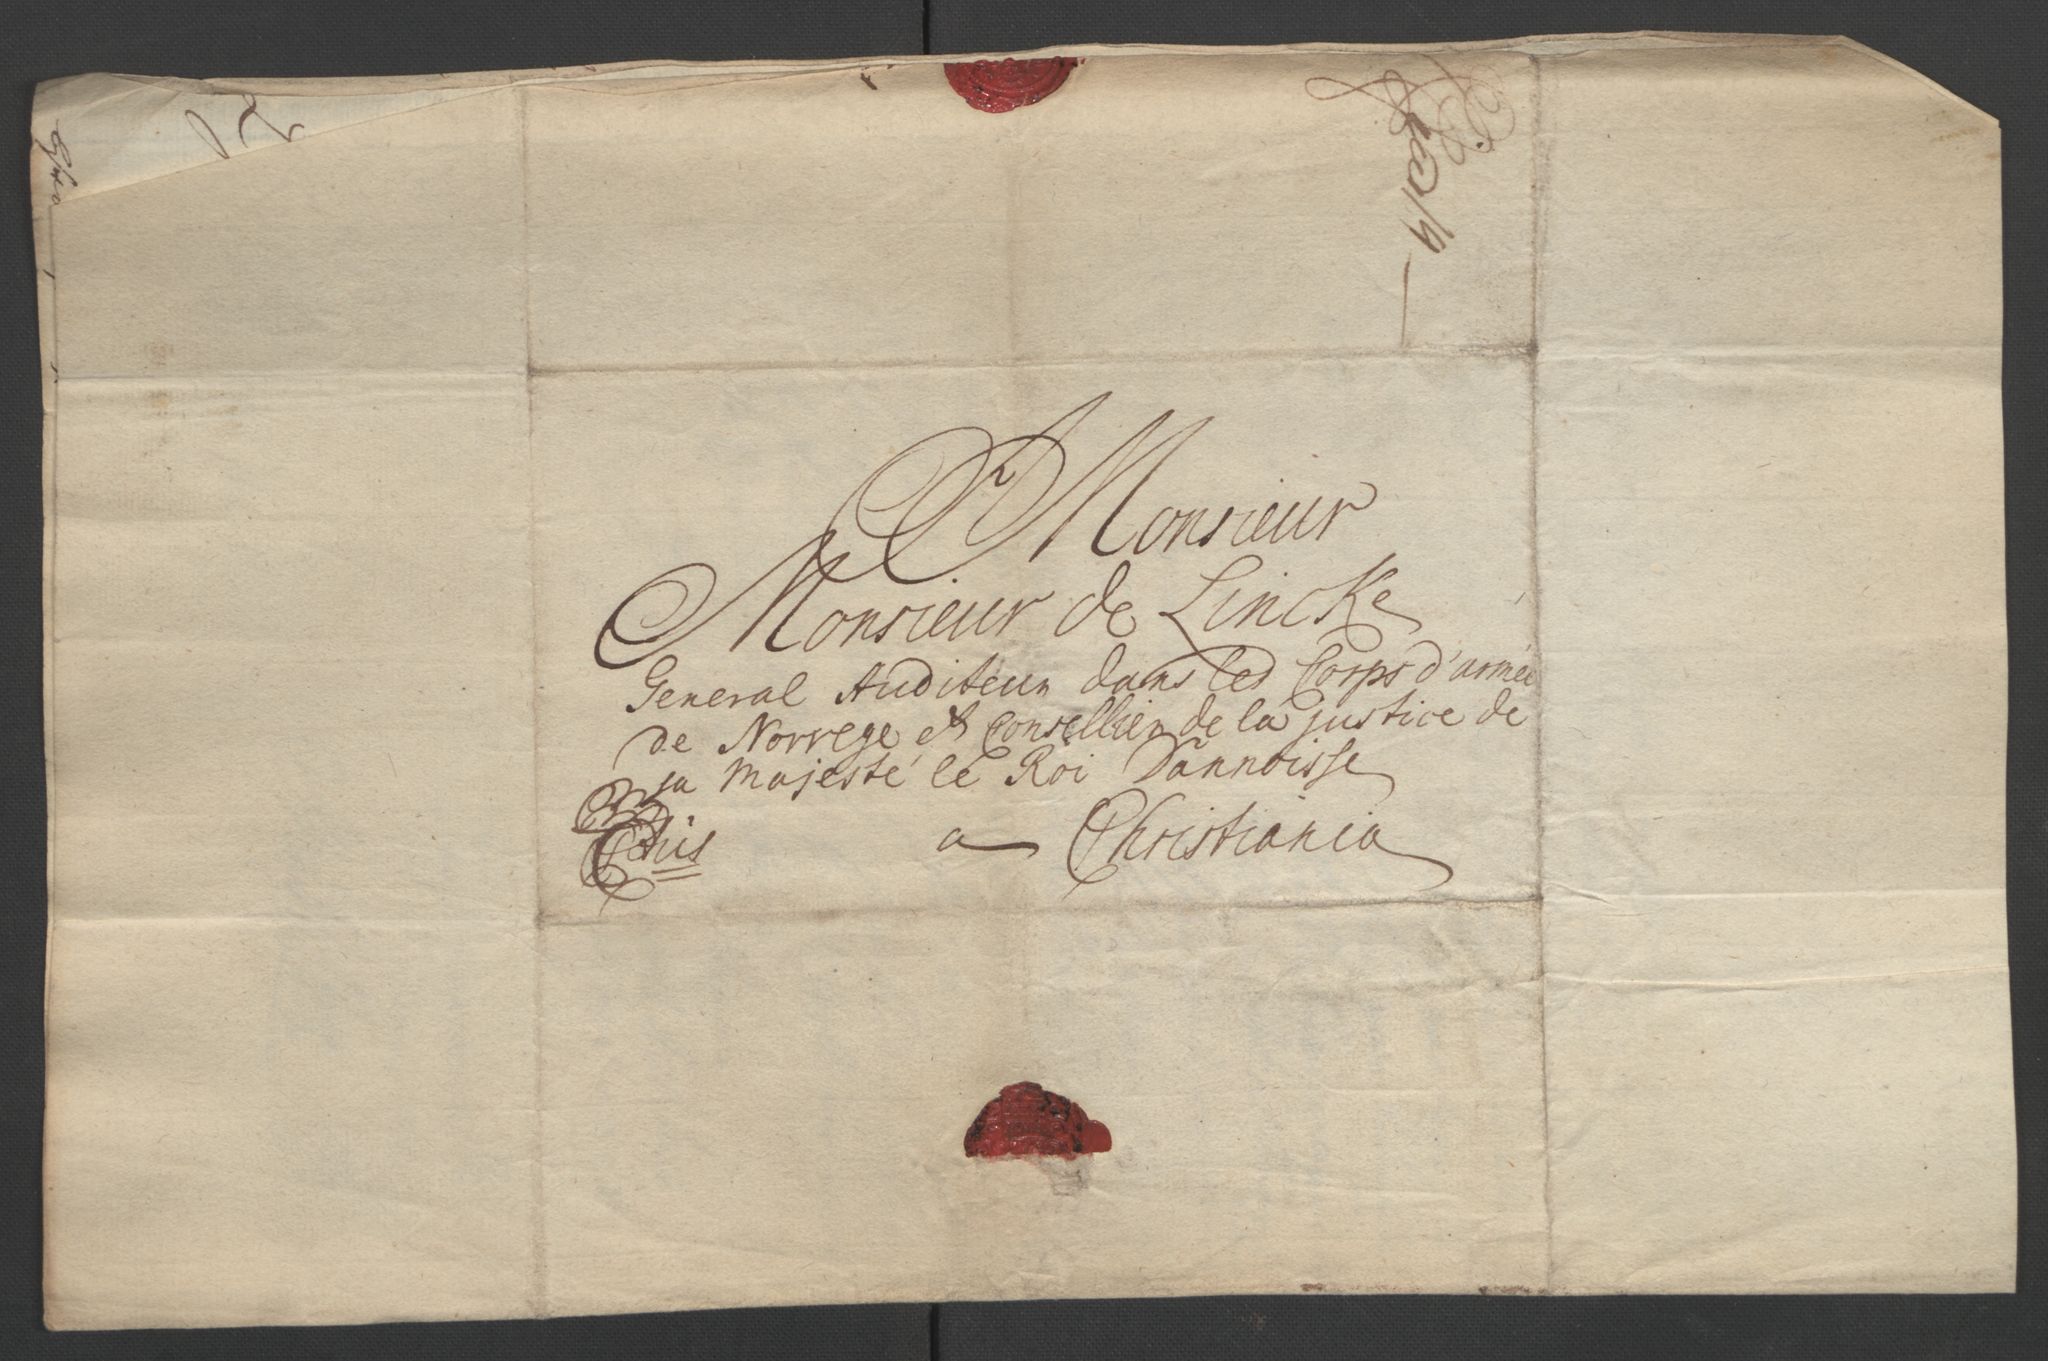 A Monsieur
Monsieur de Lincke
General Auditeur dans les Corps d'armée
de Norrege et Consellier de la justice de
sa Majesté le Roi Dannoisse
a Christiania